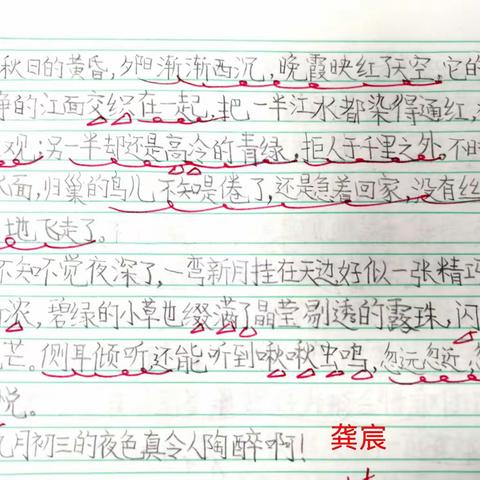 秋日的黄昏，夕阳渐渐西沉，晚霞映红了天空。它的
静的江面交织在一起，把一半江水都染得通红，
观；另一半却还是高冷的青绿，拒人于千里之外。不时
面，归巢的鸟儿不知是倦了，还是急着回家，没有丝
地飞走了。
不知不觉夜深了，一弯新月挂在天边好似一张精巧
浓，碧绿的小草也缀满了晶莹剔透的露珠，闪
芒。侧耳倾听还能听到啾啾虫鸣，忽远忽近，
悦。
九月初三的夜色真令人陶醉啊！
龚宸